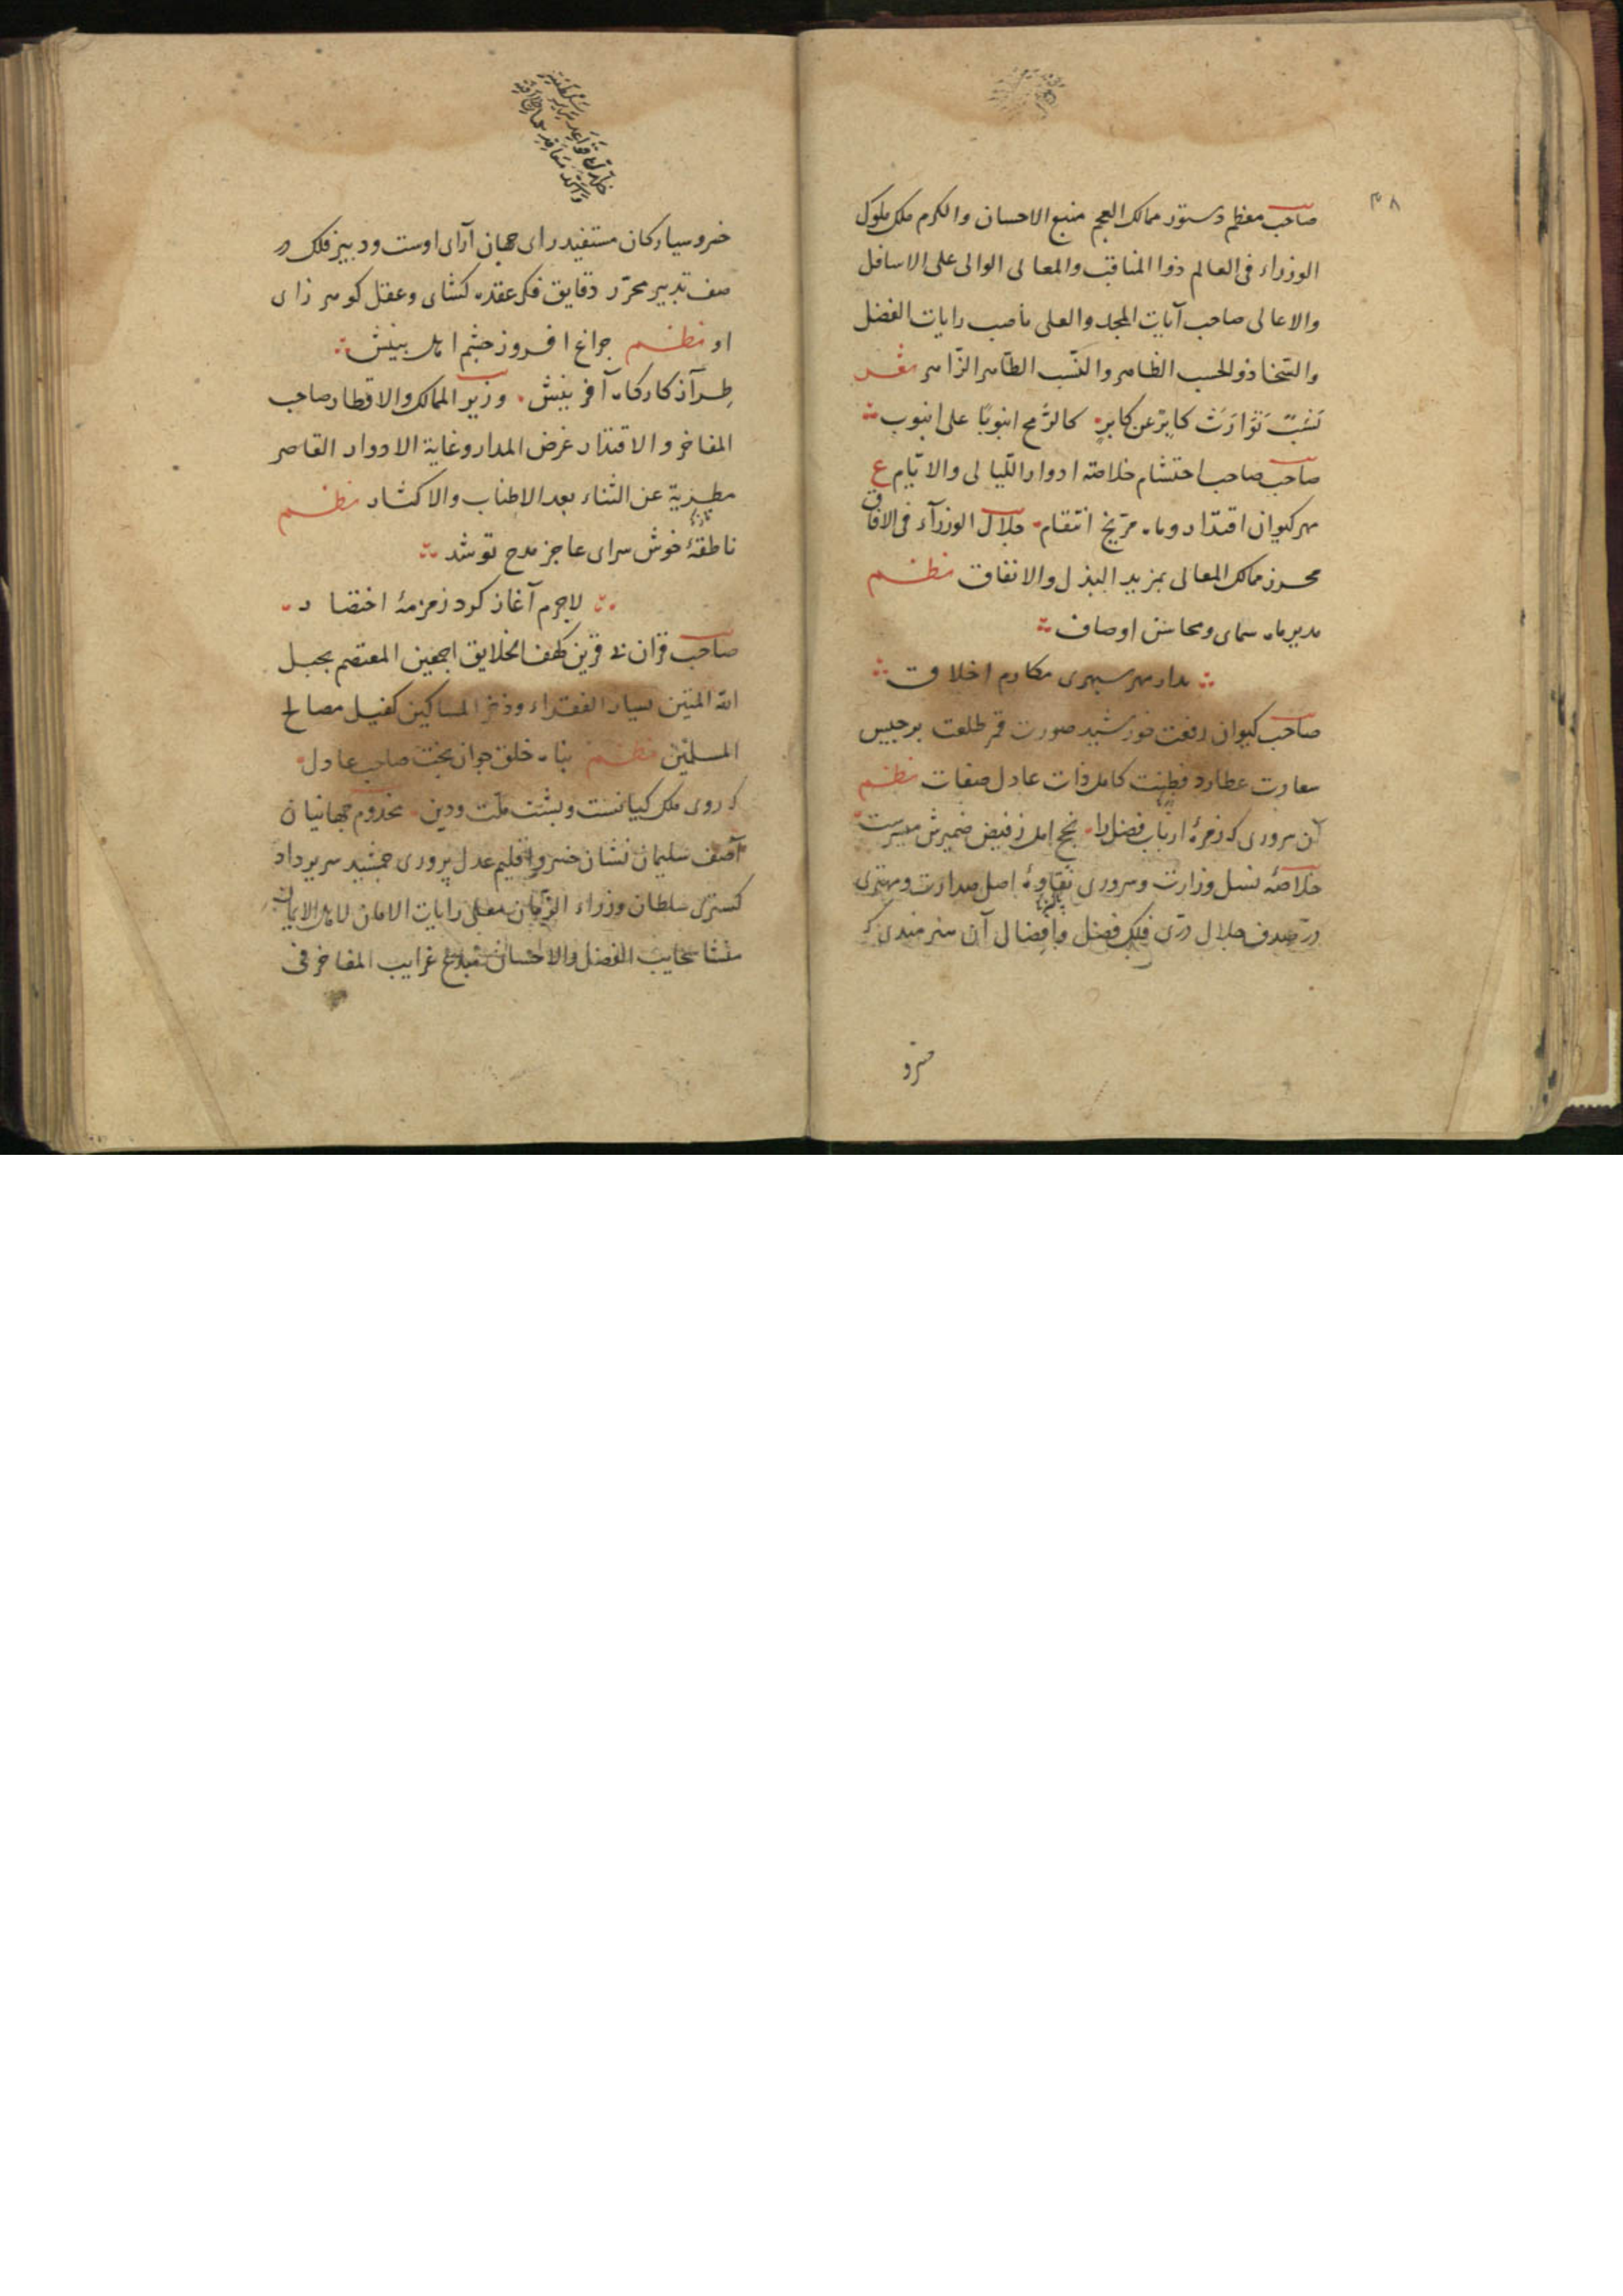 ۳۸
صاحب معظم دستور ممالک العجم منبع الاحسان والکرم ملک ملوک
الوزراء فی العالم ذوا المناقب والمعالی الوالی علی الاسافل
والاعالی صاحب آیات المجد والعلی ناصب رایات الفضل
والسخا ذو الحسب الظاهر والنّسب الطّاهر الزّاهر شعر
نَسَبٌ تَوَارَثَ کابِرٌ عن کابرٍ کالرّمح انبوبًا علی انبوب
صاحب صاحب احتشام خلاصه ادوار اللّیالی والایّام ع
مهر کیوان اقتدار و ماه مرّیخ انتقام جلال الوزرآء فی الافاق
محرز ممالک المعالی بمزید البذل والانفاق نظم
مدیر ماه سمای ومحاسن اوصاف
مدار مهر سپهری مکارم اخلاق
صاحب کیوان رفعت خورشید صورت قمر طلعت برجیس
سعادت عطارد فطنت کامل ذات عادل صفات نظم
آن سروری که زمرهٔ ارباب فضل را نجح امل ز فیض ضمیرش میسرست
خلاصهٔ نسل وزارت وسروری نقاوهٔ اصل صدارت ومهتری
درّ صدف جلال درّی فلک فضل وافضال آن هنرمندی که
خسرو
خسرو سیارکان مستفید رای جهان آرای اوست ودبیر فلک در
صف تدبیر محرّر دقایق فکر عقده کشای وعقل کوهر زای
او نظم چراغ افروز چشم اهل بینش
طِراز کارکاه آفرینش وزیر الممالک والاقطار صاحب
المفاخر والاقتدار غرض المدار وغایة الادوار القاصر
مطریة عن الثناء بعد الاطناب والاکثار نظم
ناطقهٔ خوش سرای عاجز مدح تو شد
لاجرم آغاز کرد زمزمهٔ اختصار
صاحب قران بی قرین کهف الخلایق اجمعین المعتصم بحبل
الله المتین یسار الفقراء وذخر المساکین کفیل مصالح
المسلمین نظم پناه خلق جوان بخت صاحب عادل
که روی ملک کیانست وپشت ملّت ودین مخدوم جهانیان
آصف سلیمان نشان خسرو اقلیم عدل پروری جمشید سریر داد
کستری سلطان وزراء الزمان معلی رایات الامان لاهل الایمان
منشا سحایب الفضل والاحسان مبدع غرایب المفاخر فی